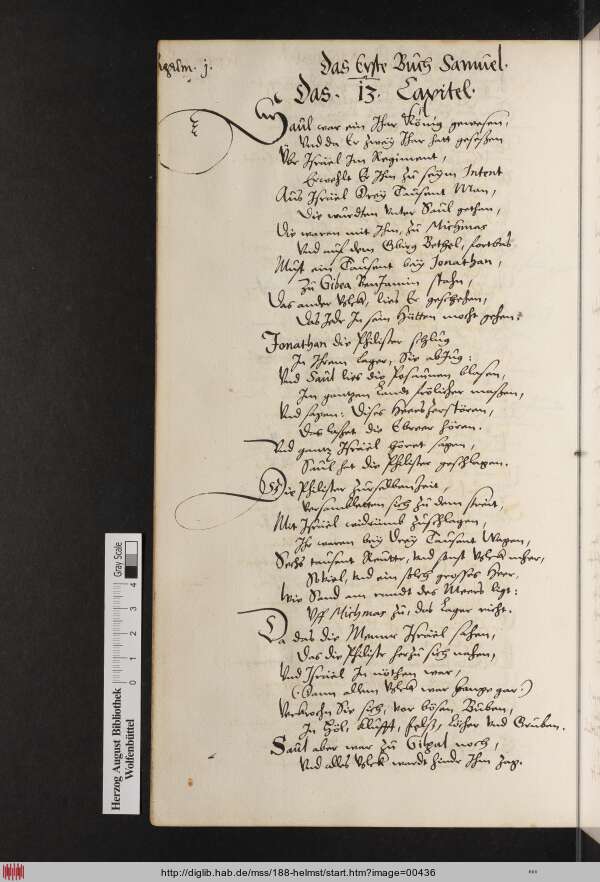 Psalm. j.
Das Erste Buch Samuel.
Das. 13. Capitel.
Saul war ein Jhar König gewesen,
Vnd da Er zweÿ Jhar hatt gesessen
Vbr Israel Im Regiment,
Erwehlt Er Ihm zu seÿm Intent
Aus Israel dreÿ Tausent Man,
Die wurdten vnter Saul gethan,
Die waren mit Ihm, zu Michmas
Vnd auf dem Gbirg Bethel,
Must ein Tausent beÿ Jonathan,
Zu Gibea BenJamin stahn,
Das ander Volck, lies Er geschehen,
Das Jeder In sein Hütten mocht gehen:
Jonathan die Philister schlug
In Ihrem lager,
Vnd Saul lies die Posaunen blasen,
Im gantzen Landt frölicher massen,
Vnd sagen: Dises Heers zerstören,
Das lasset die Ebreer hören.
Vnd gantz Israel höret sagen,
Saul hat die Philister geschlagen.
Die Philister zur selben Zeit,
Versambletten sich zu dem streit,
Mit Israel widrumb zuschlagen,
Ihr waren beÿ dreÿ Tausent Wagen,
Sechs tausent Reutter, Vnd sonst Volck mher,
So viel, Vnd ein solch grosses Heer,
Wie Sand am randt des Meers ligt:
Vff Michmas zu, das Lager richt.
Da das die Menner Israel sahen,
Das die Philister herzu sich nahen,
Vnd Israel In nöthen war,
(Dann allem Volck war bange gar.)
Verkrochn Sie sich, vor bösen Buben,
In Höl, Klüfft, Felß, Löcher Vnd Gruben.
Saul aber war zu Gilgal noch,
Vnd alles Volck wardt hinder Ihm zag.
Herzog August Bibliothek
Wolfenbüttel
Gray Scale
0 1 2 3 4
http://diglib.hab.de/mss/188-helmst/start.htm?image=00436